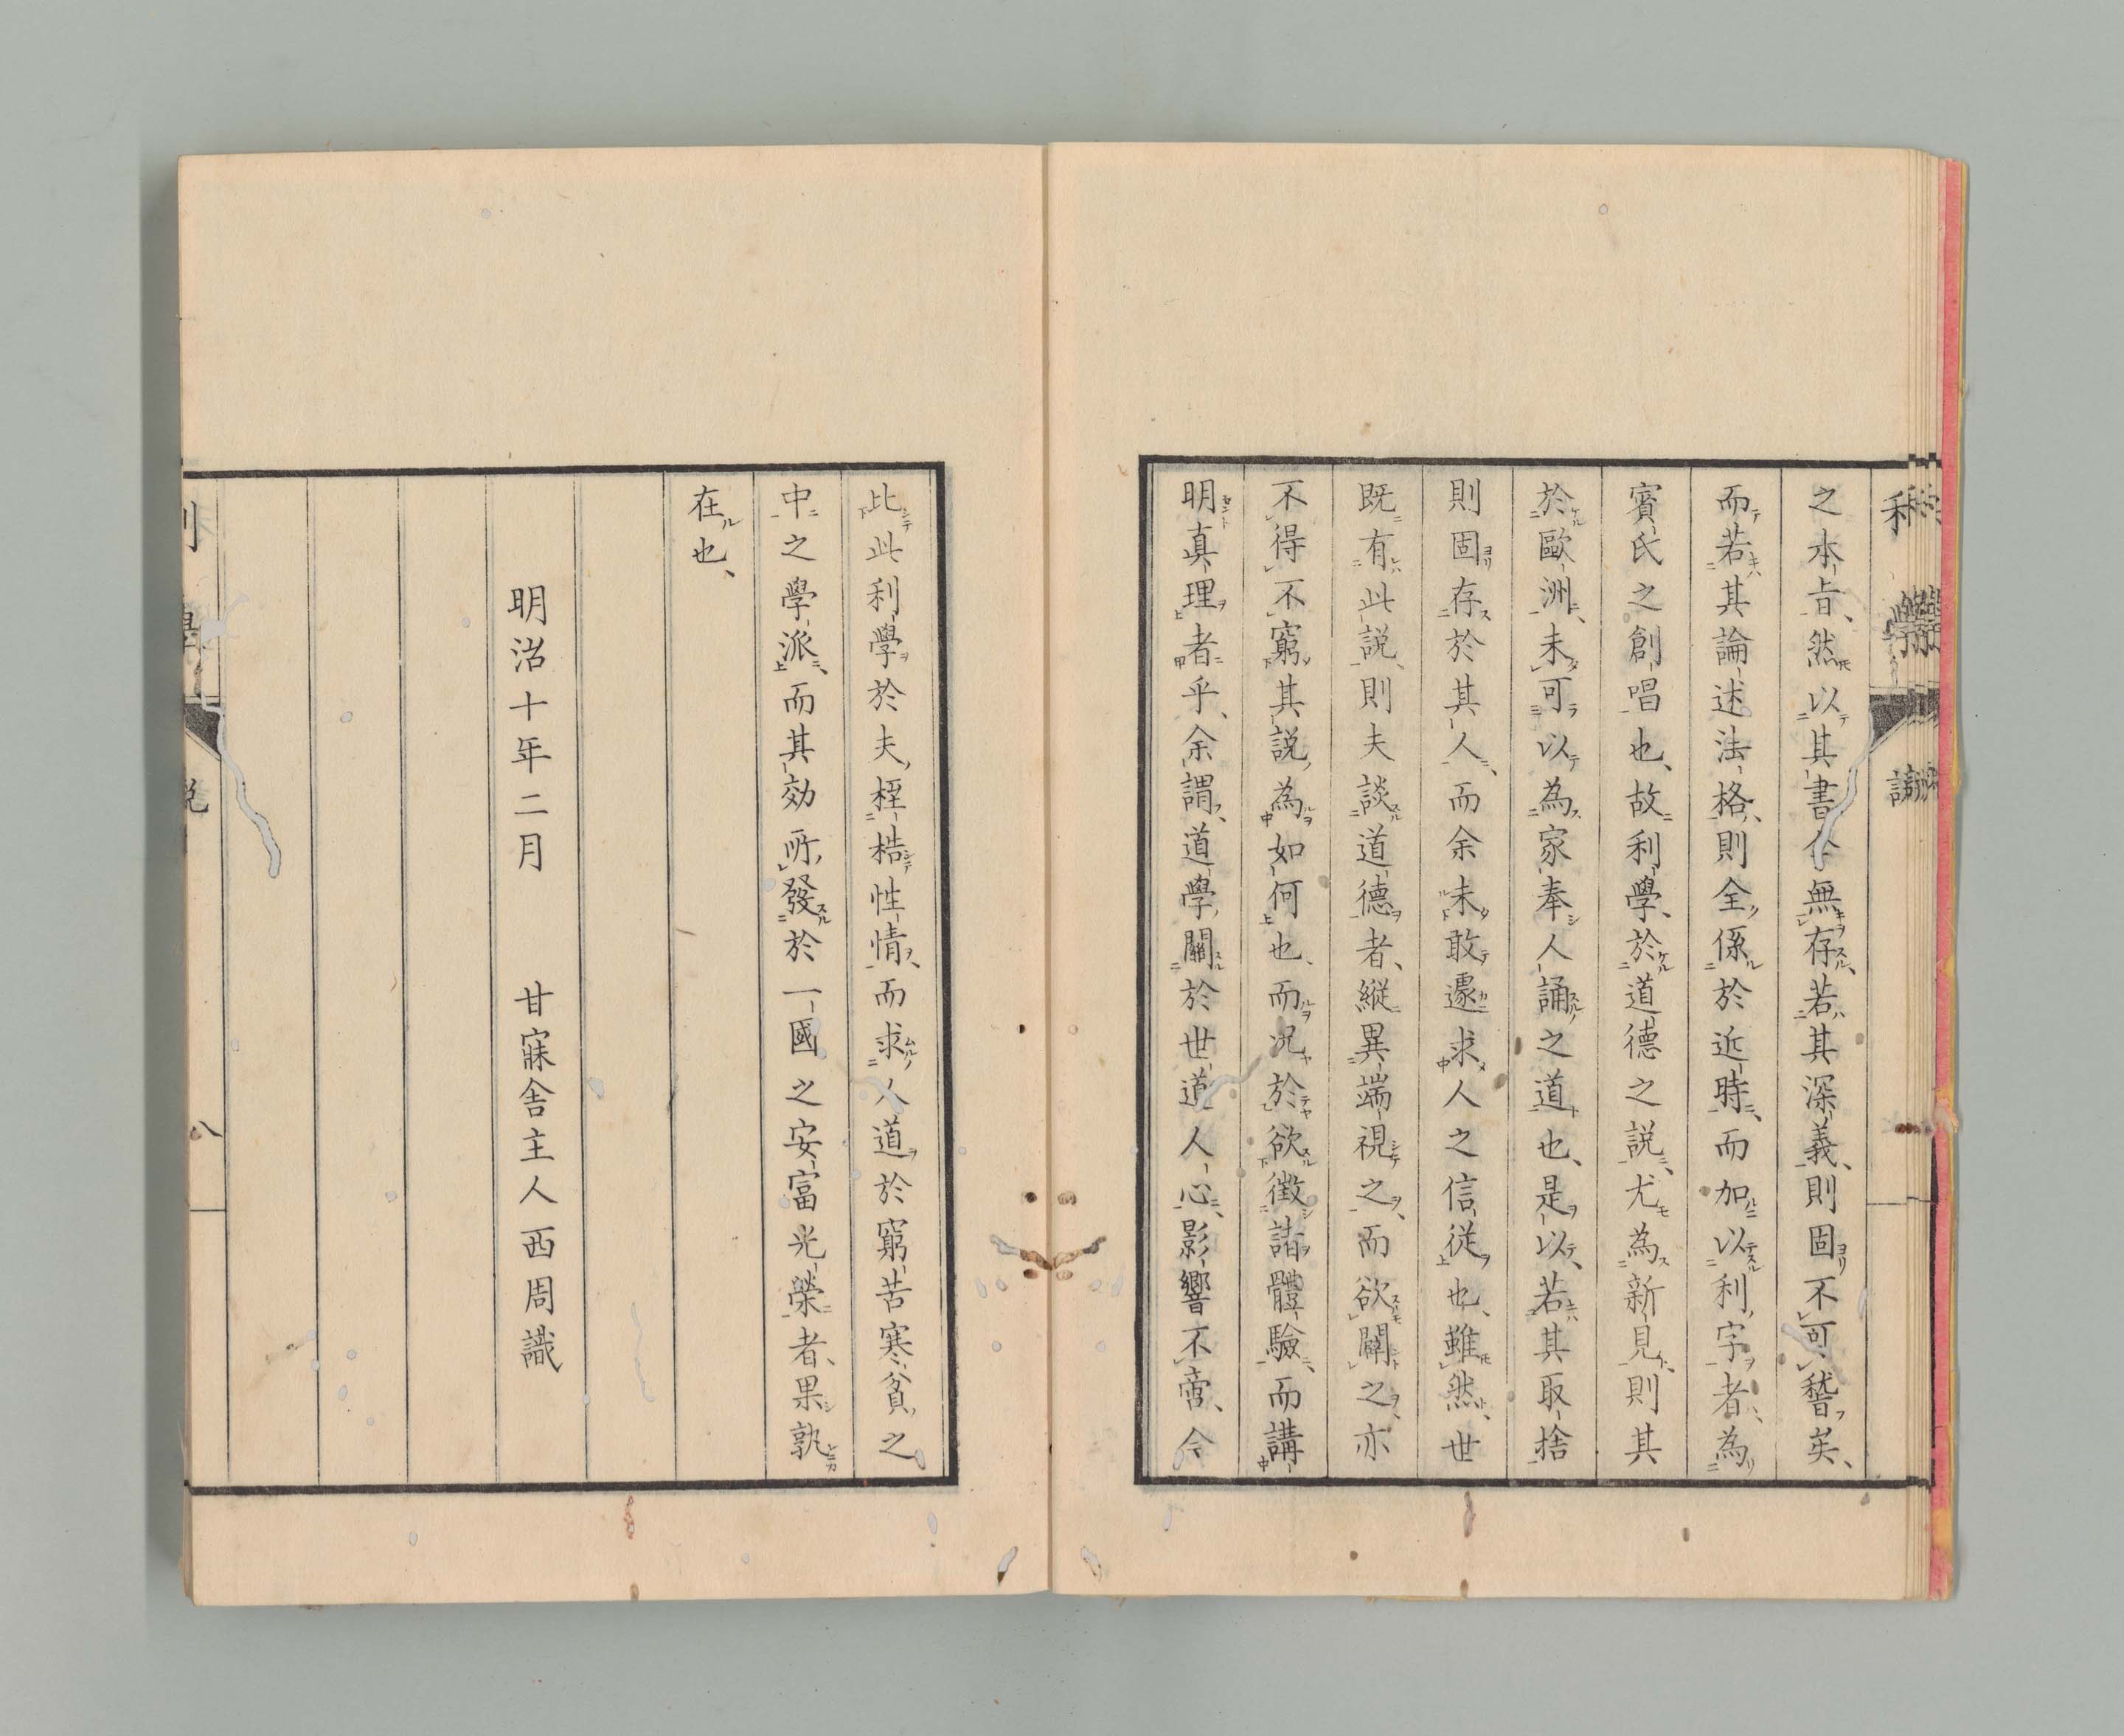 之本旨、然以其書今無存、若其深義、則固不可、稽矣、
而若其論述法格、則全係於近時、而加以利字者、為
賓氏之創唱也、故利學、於道德之説、尤為新見、則其
於歐洲、未可以為家奉人誦之道也、是以、若其取捨
則固存於其人、而余未敢遽求人之信從也、雖然、世
既有此説、則夫談道德者、縱異端視之、而欲闢之、亦
不得不窮其説、為如何也、而況於欲徵諸體驗、而講
明真理者乎、余謂、道學關於世道人心、影響不啻、今
比此利學於夫桎梏性情、而求人道於窮苦寒貧之
中之學派、而其効所發於一國之安富光榮者、果孰
在也、
明治十年二月 甘寐舍主人西周識
利學 説
八